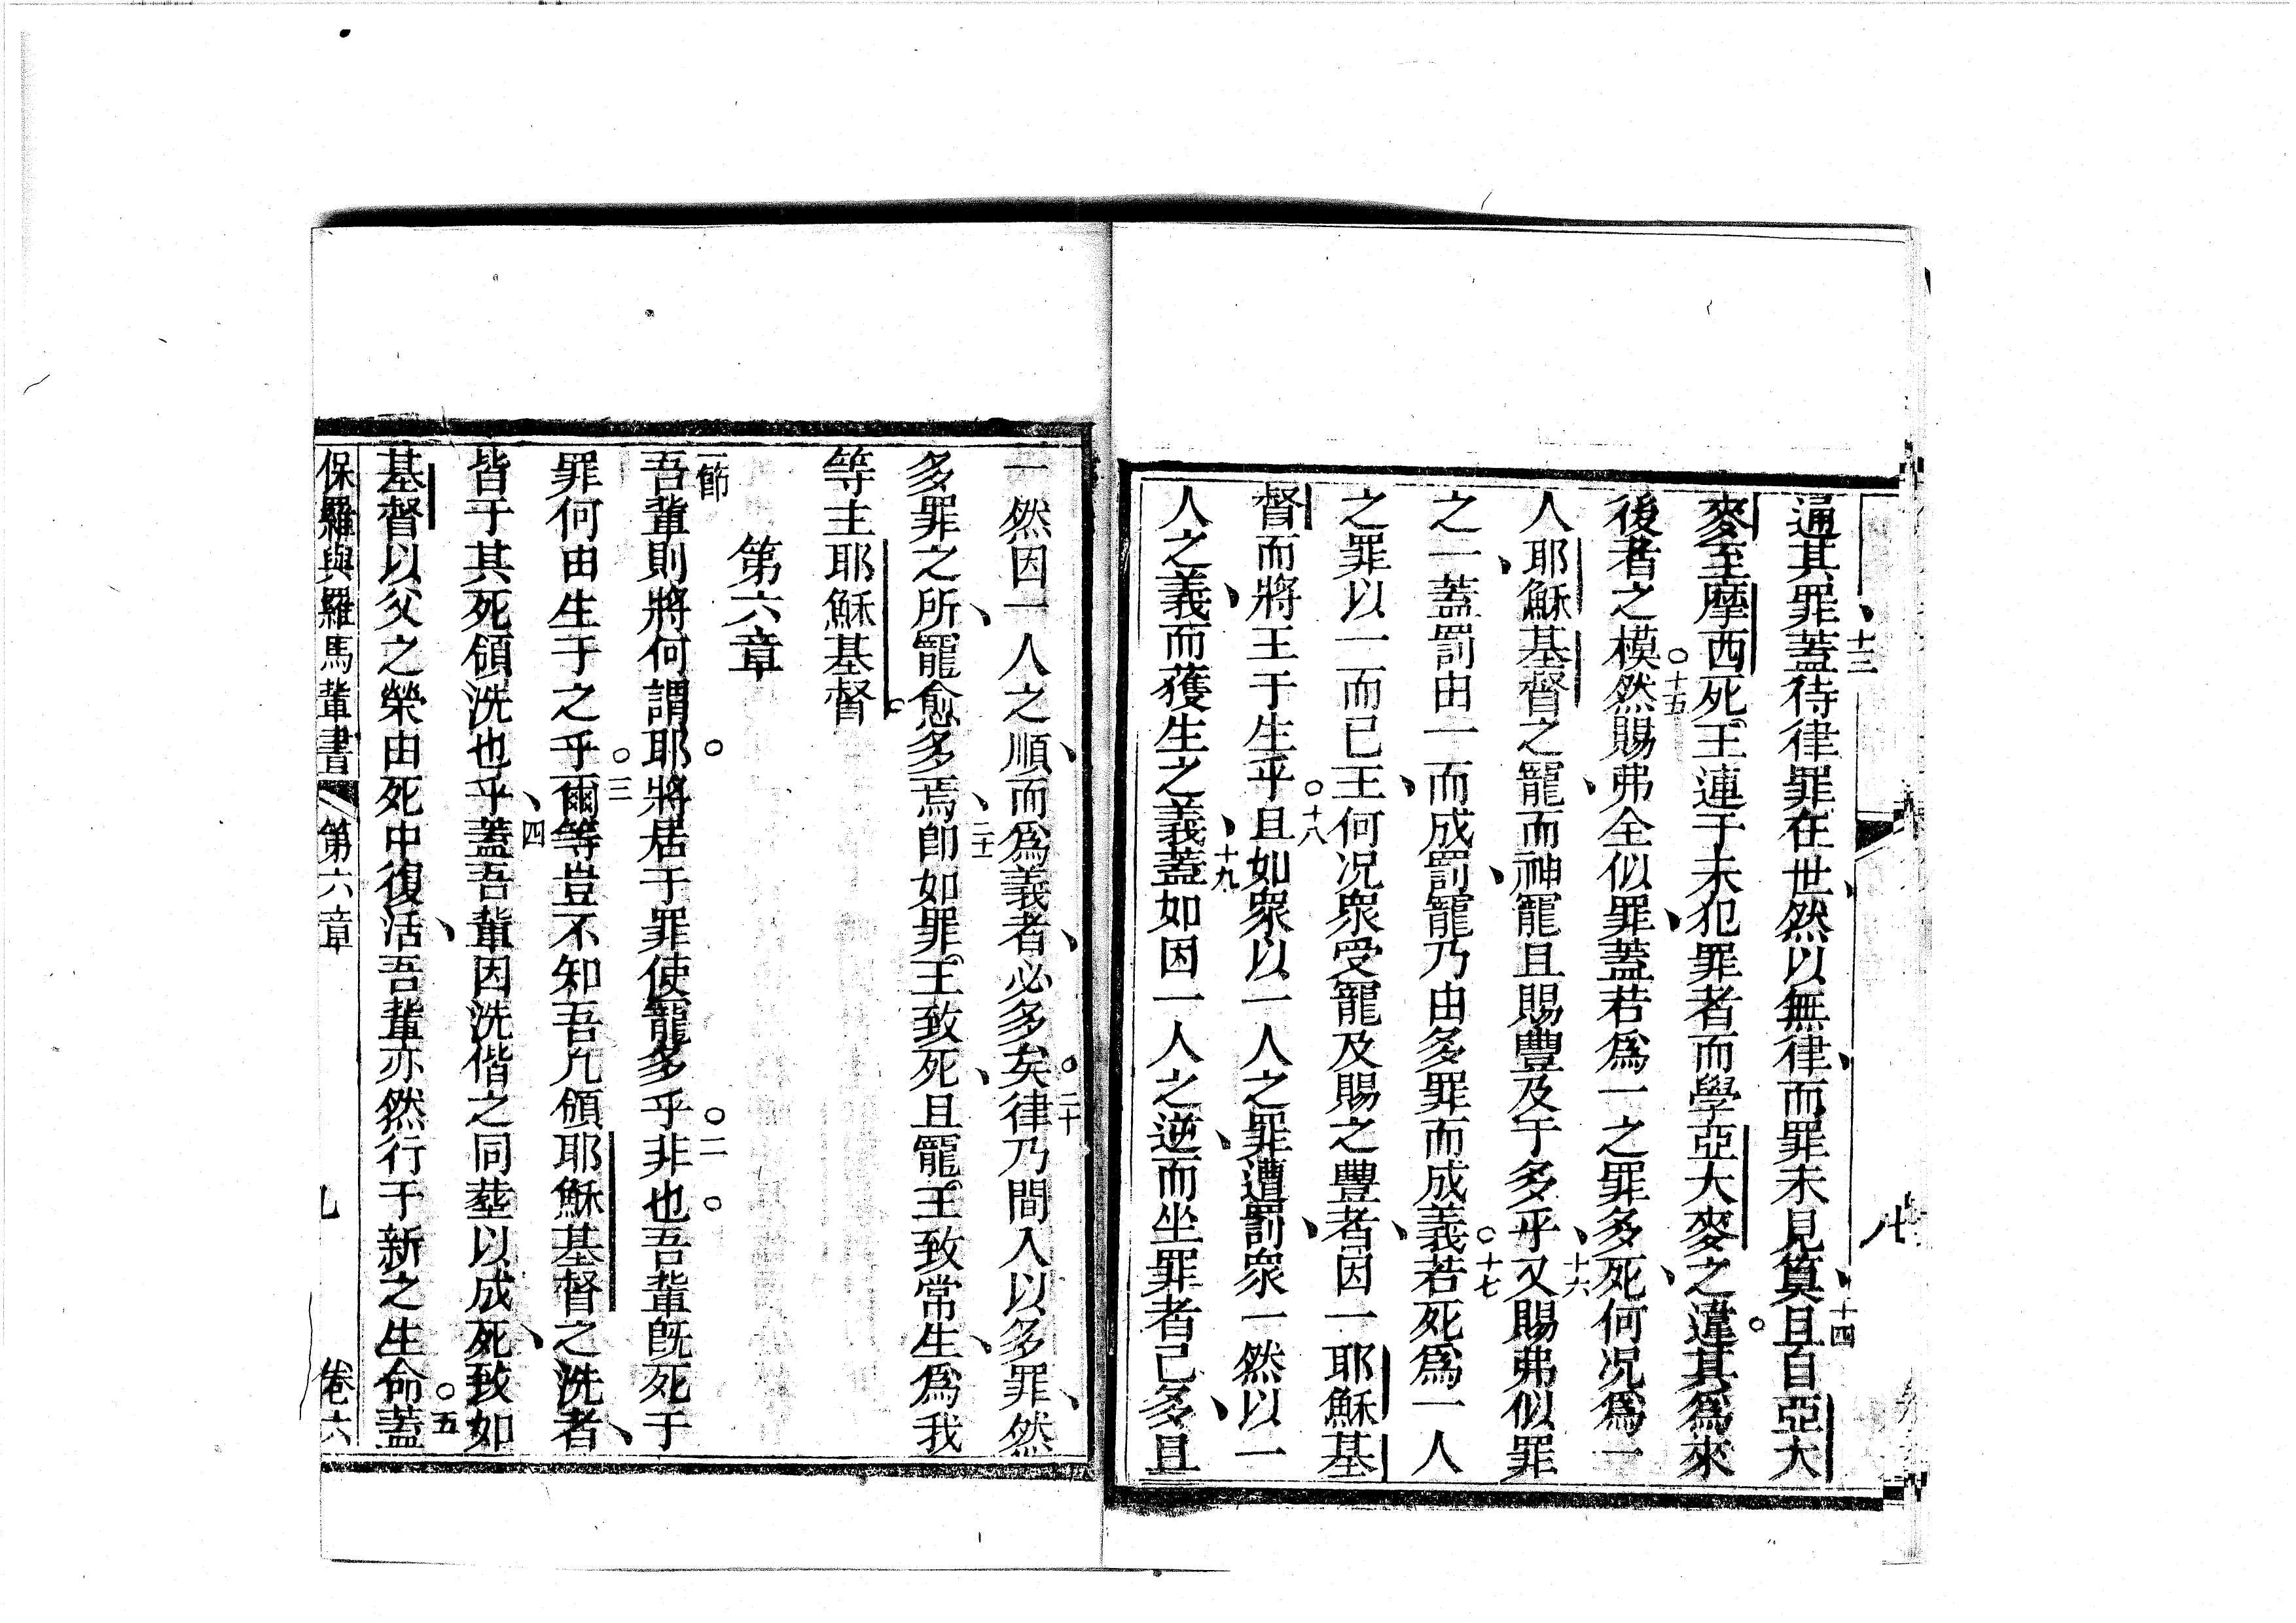 通其罪蓋待律罪在世然以無律而罪未見筭且自亞大
十三
十四
麥至摩西死王連于未犯罪者而學亞大麥之違其爲來
後者之模然賜弗全似罪蓋若爲一之罪多死何况爲一
十五
人耶穌基督之寵而神寵且賜豐及于多乎又賜弗似罪
十六
之一蓋罰由一而成罰寵乃由多罪而成義若死爲一人
十七
之罪以一而已王何况眾受寵及賜之豐者因一耶穌基
督而將王于生乎且如眾以一人之罪遭罰眾一然以一
十八
人之義而獲生之義蓋如因一人之逆而坐罪者已多且
十九
八
一然因一人之順而爲義者必多矣律乃間入以多罪然
二十
多罪之所寵愈多焉即如罪王致死且寵王致常生爲我
二十一
等主耶穌基督
第六章
吾輩則將何謂耶將居于罪使寵多乎非也吾輩既死于
一節
二
罪何由生于之乎爾等豈不知吾凢領耶穌基督之洗者
三
皆于其死領洗也乎蓋吾輩因洗偕之同塟以成死致如
四
基督以父之榮由死中復活吾輩亦然行于新之生命蓋
五
保羅與羅馬輩書 第六章 卷六